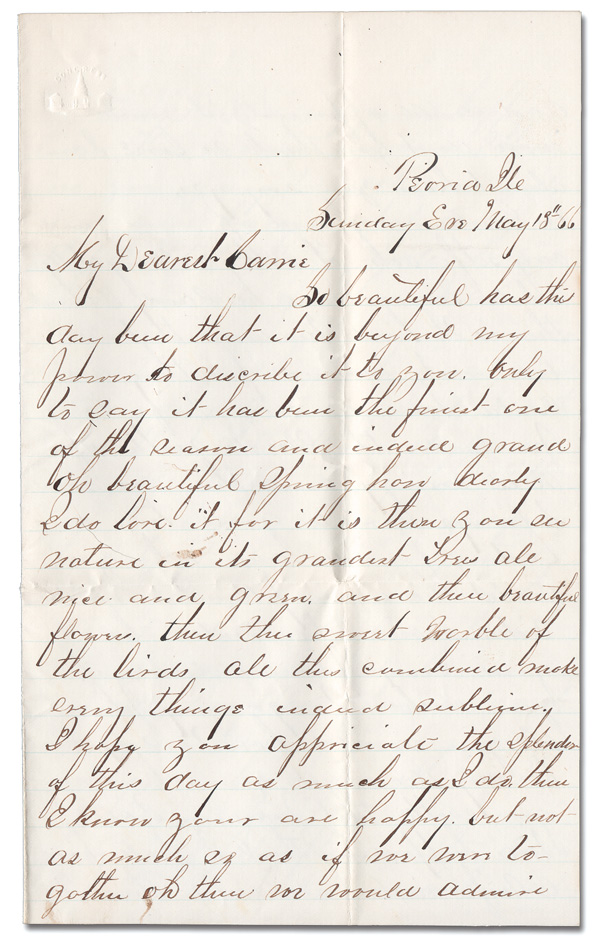 Peoria Ile
Sunday Eve May 13" 66
My Dearest Carrie
So beautiful has this
day been that it is beyond my
power to discribe it to you. only
to say it has been the finest one
of the season and indeed grand
Oh beautiful Spring how dearly
I do love it for it is then you see
nature in its grandest Trees all
nice and green. and then beautiful
flowers. then the sweet warble of
the birds all this combined make
every things indeed sublime.
I hope you appriciate the splendor
of this day as much as I do. then
I know your are happy. but not
as much so as if we were to-
gather oh then we would admire